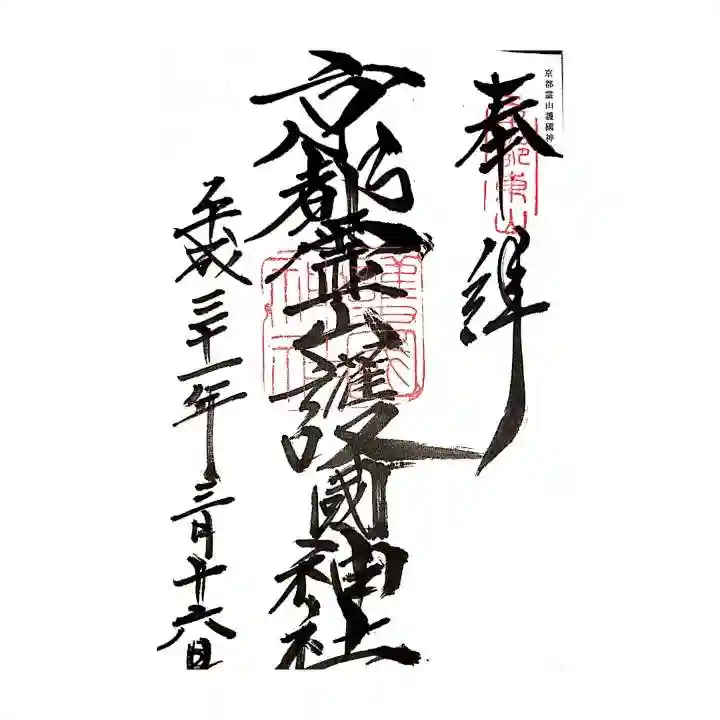 京都霊山護國神
奉拝
京都東山
京都霊山護國神社
平成三十一年三月十六日